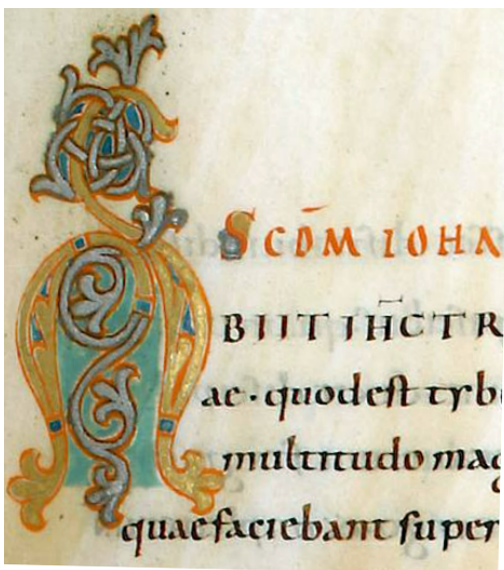 SCD̄M IOHA
ABIIT IH̄C TR
ae · quod est tyb
multitudo mag
quae faciebant super